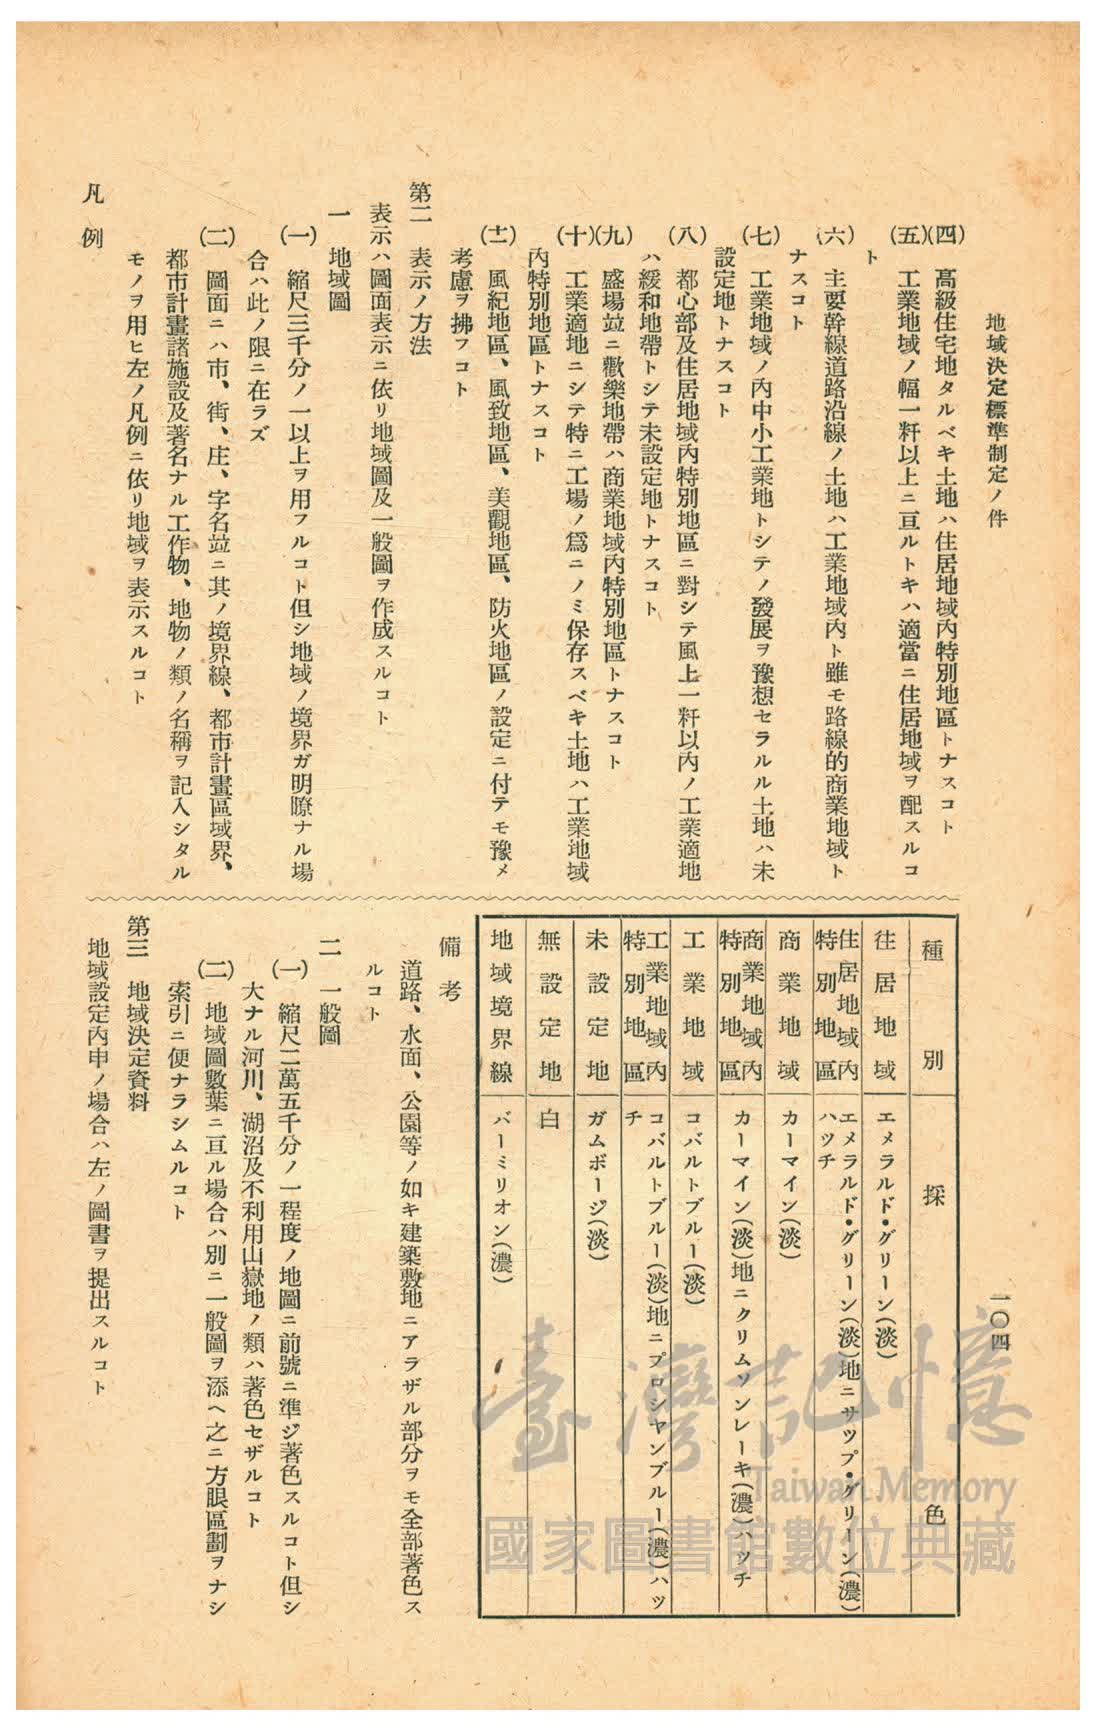 地域決定標準制定ノ件
一〇四
(四) 高級住宅地タルベキ土地ハ住居地域內特別地區トナスコト
(五) 工業地域ノ幅一粁以上ニ亘ルトキハ適當ニ住居地域ヲ配スルコ
ト
(六) 主要幹線道路沿線ノ土地ハ工業地域內ト雖モ路線的商業地域ト
ナスコト
(七) 工業地域ノ內中小工業地トシテノ發展ヲ豫想セラルル土地ハ未
設定地トナスコト
(八) 都心部及住居地域內特別地區ニ對シテ風上一粁以內ノ工業適地
ハ緩和地帶トシテ未設定地トナスコト
(九) 盛場竝ニ歡樂地帶ハ商業地域內特別地區トナスコト
(十) 工業適地ニシテ特ニ工場ノ爲ニノミ保存スベキ土地ハ工業地域
內特別地區トナスコト
(十一) 風紀地區、風致地區、美觀地區、防火地區ノ設定ニ付テモ豫メ
考慮ヲ拂フコト
第二 表示ノ方法
表示ハ圖面表示ニ依リ地域圖及一般圖ヲ作成スルコト
一 地域圖
(一) 縮尺三千分ノ一以上ヲ用フルコト但シ地域ノ境界ガ明瞭ナル場
合ハ此ノ限ニ在ラズ
(二) 圖面ニハ市、街、庄、字名竝ニ其ノ境界線、都市計畫區域界、
都市計畫諸施設及著名ナル工作物、地物ノ類ノ名稱ヲ記入シタル
モノヲ用ヒ左ノ凡例ニ依リ地域ヲ表示スルコト
凡例
種別 採色
住居地域 エメラルド・グリーン(淡)
住居地域內特別地區 エメラルド・グリーン(淡)地ニサツプ・グリーン(濃)
ハツチ
商業地域 カーマイン(淡)
商業地域內特別地區 カーマイン(淡)地ニクリムソンレーキ(濃)ハツチ
工業地域 コバルトブルー(淡)
工業地域內特別地區 コバルトブルー(淡)地ニプロシヤンブルー(濃)ハツ
チ
未設定地 ガムボージ(淡)
無設定地 白
地域境界線 バーミリオン(濃)
備考
道路、水面、公園等ノ如キ建築敷地ニアラザル部分ヲモ全部著色ス
ルコト
二 一般圖
(一) 縮尺二萬五千分ノ一程度ノ地圖ニ前號ニ準ジ著色スルコト但シ
大ナル河川、湖沼及不利用山嶽地ノ類ハ著色セザルコト
(二) 地域圖數葉ニ亘ル場合ハ別ニ一般圖ヲ添ヘ之ニ方眼區劃ヲナシ
索引ニ便ナラシムルコト
第三 地域決定資料
地域設定內申ノ場合ハ左ノ圖書ヲ提出スルコト
臺灣記憶
Taiwan Memory
國家圖書館數位典藏